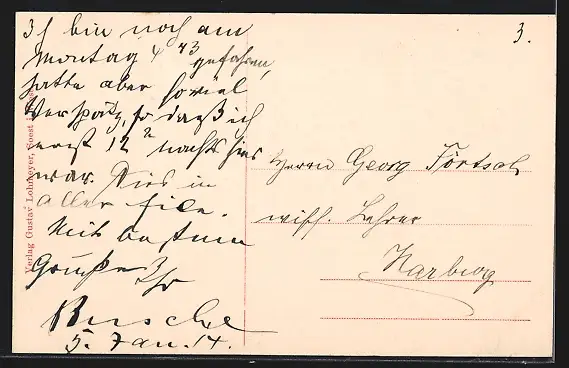 Ich bin noch am
Montag 4 43 gefahren,
hatte aber soviel
Verspätg, so daß ich
erst 12 2 nachts hier
war. Dies in
aller Eile.
Mit besten
Grüßen Ihr
Busche
5. Jan. 14.
3.
Herrn Georg Förtsch
wiss. Lehrer
Harburg
Verlag Gustav Lohmeyer, Soest